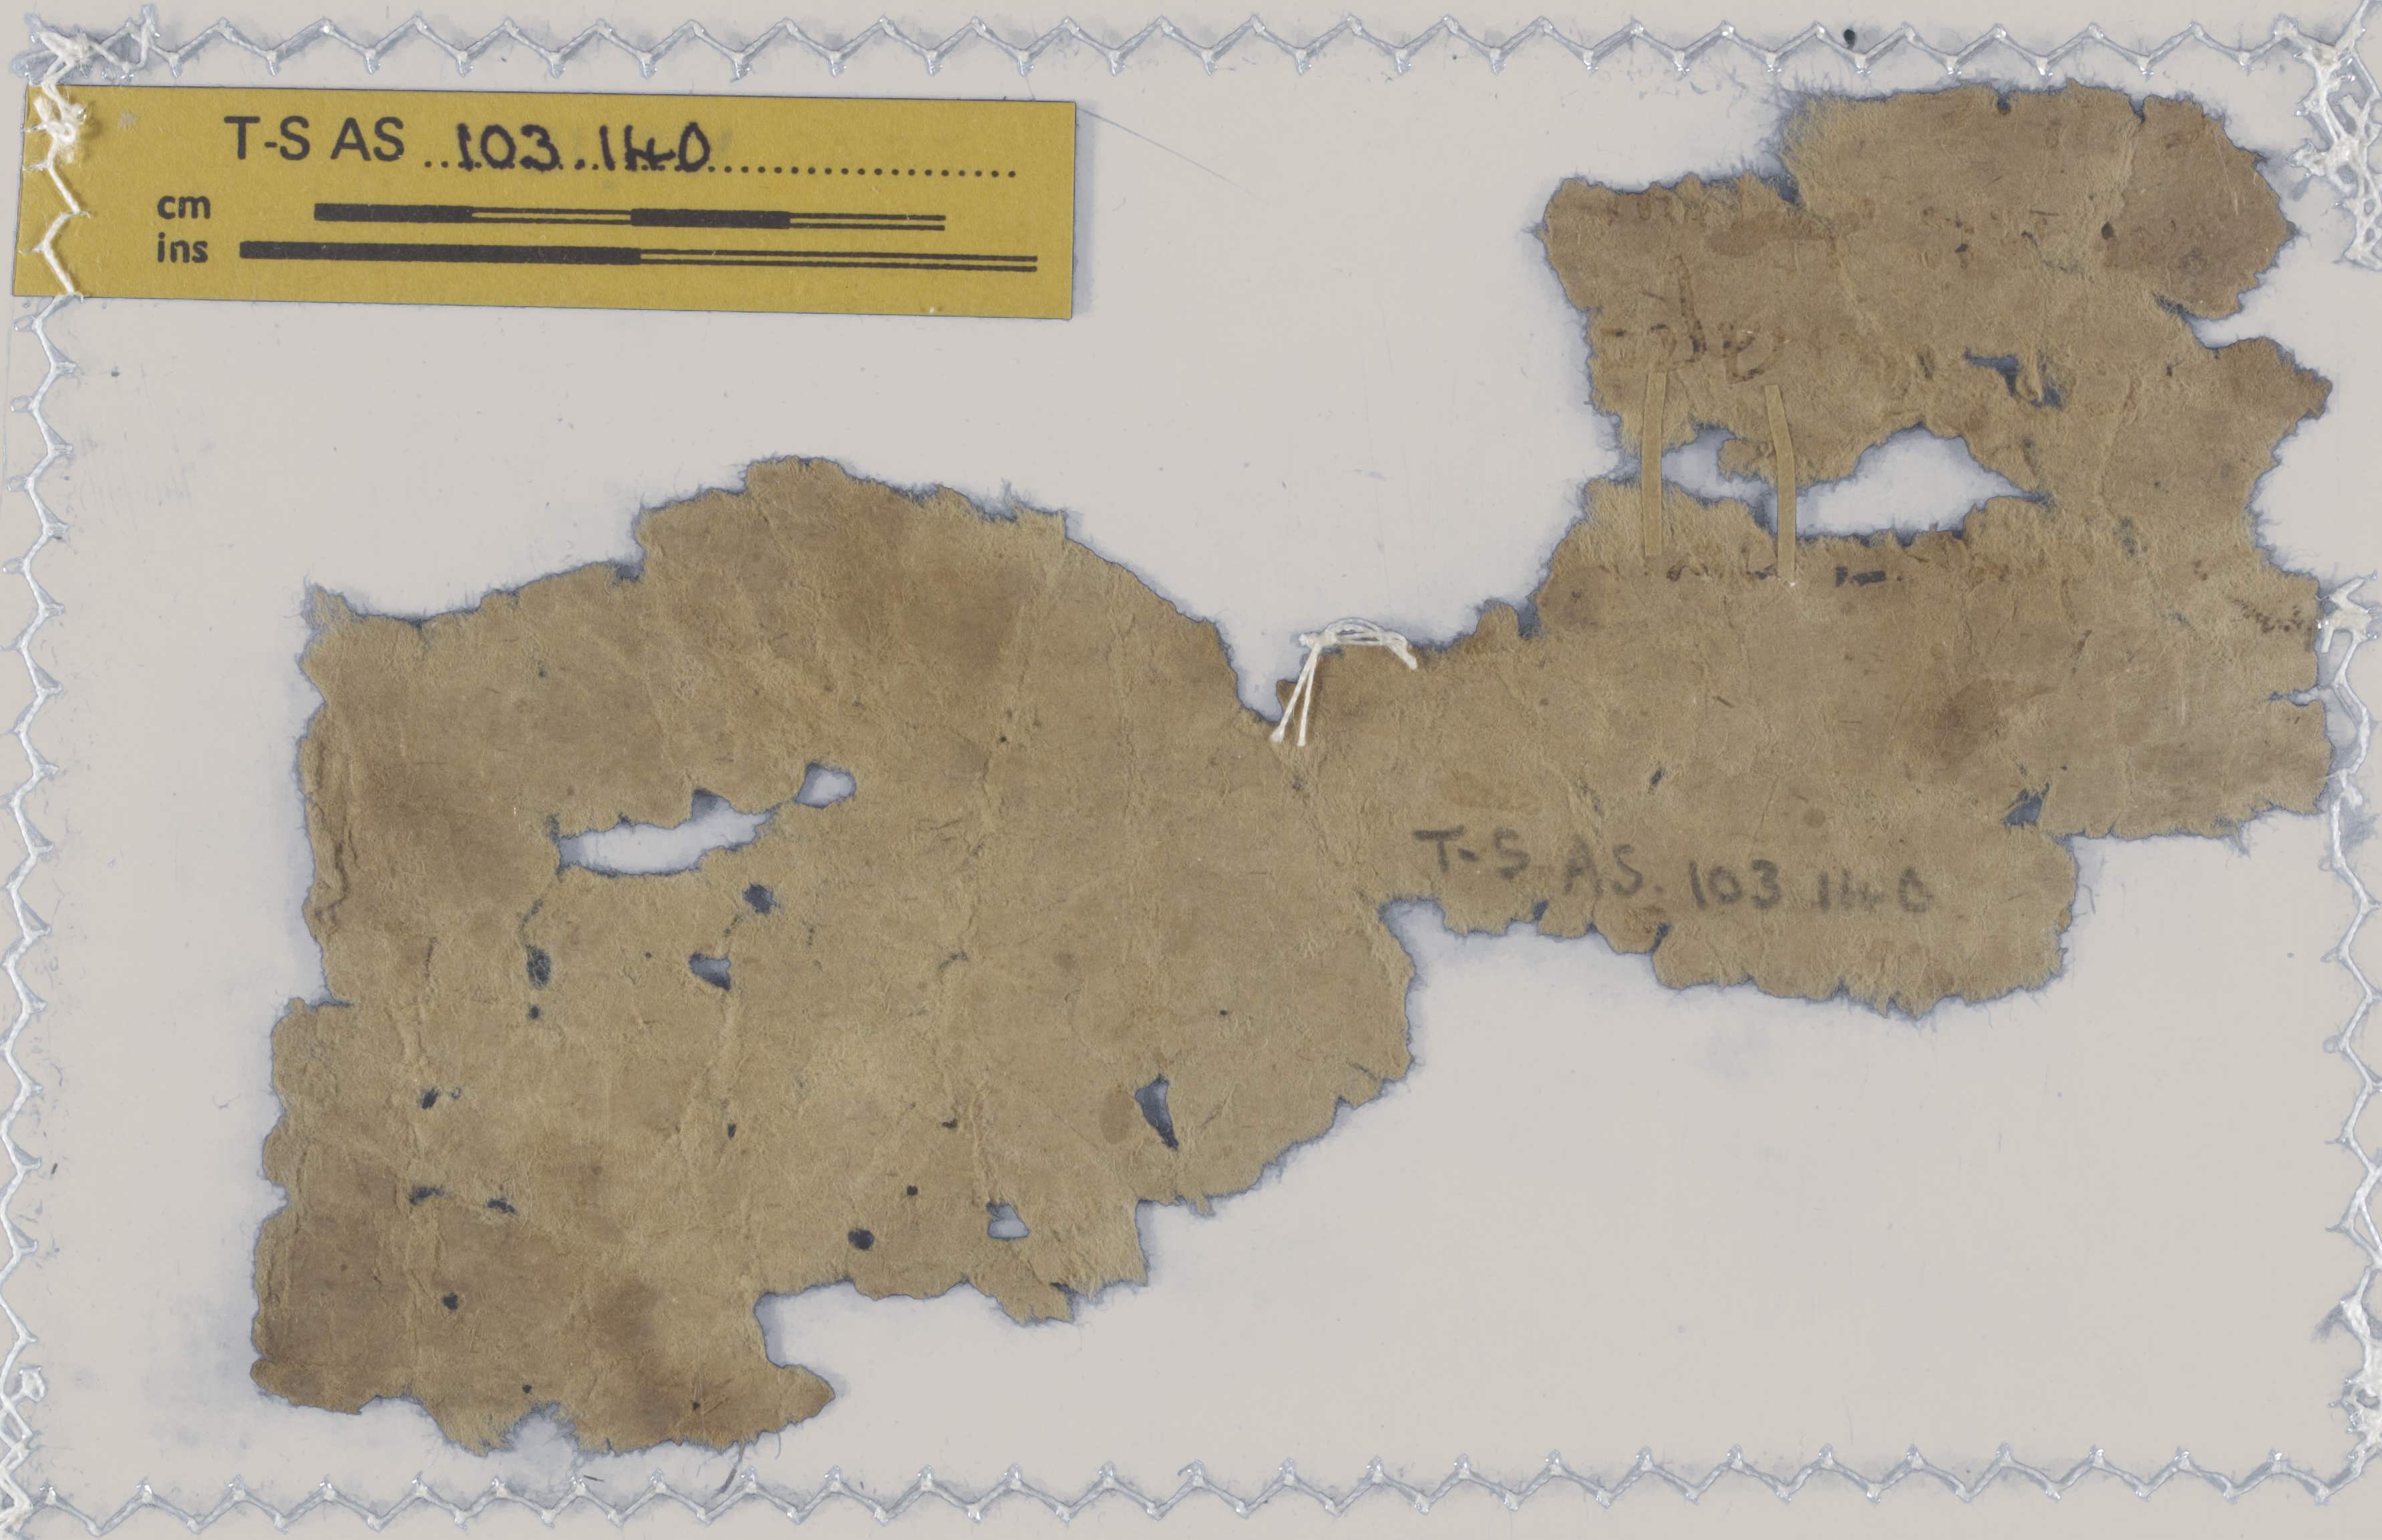 T-S AS 103.140
cm
ins
T-S AS. 103.140